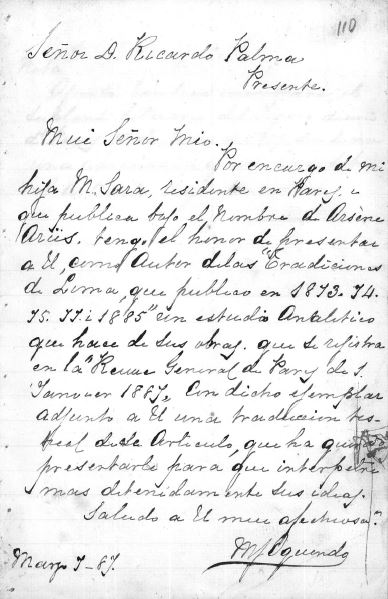 110
Señor D. Ricardo Palma
Presente.
Mui Señor Mio.
Por encargo de mi
hija M. Sara, residente en Pary, i
que publica bajo el Nombre de Arsène
Arüs. tengo el honor de presentar
a U, como Autor de las "Tradiciones
de Lima, que publico en 1873. 74.
75. 77 i 1885" un estudio Analitico
que hace de sus obras, que se registra
en la "Revue General de Pary de 1.
Janvier 1887, Con dicho ejemplar
adjunto a U una traduccion
de Articulo, que ha
presentarle para que
mas detenidamente sus ideas.
Saludo a U mui afectuosa.
M J Oquendo
Marzo 7-87.